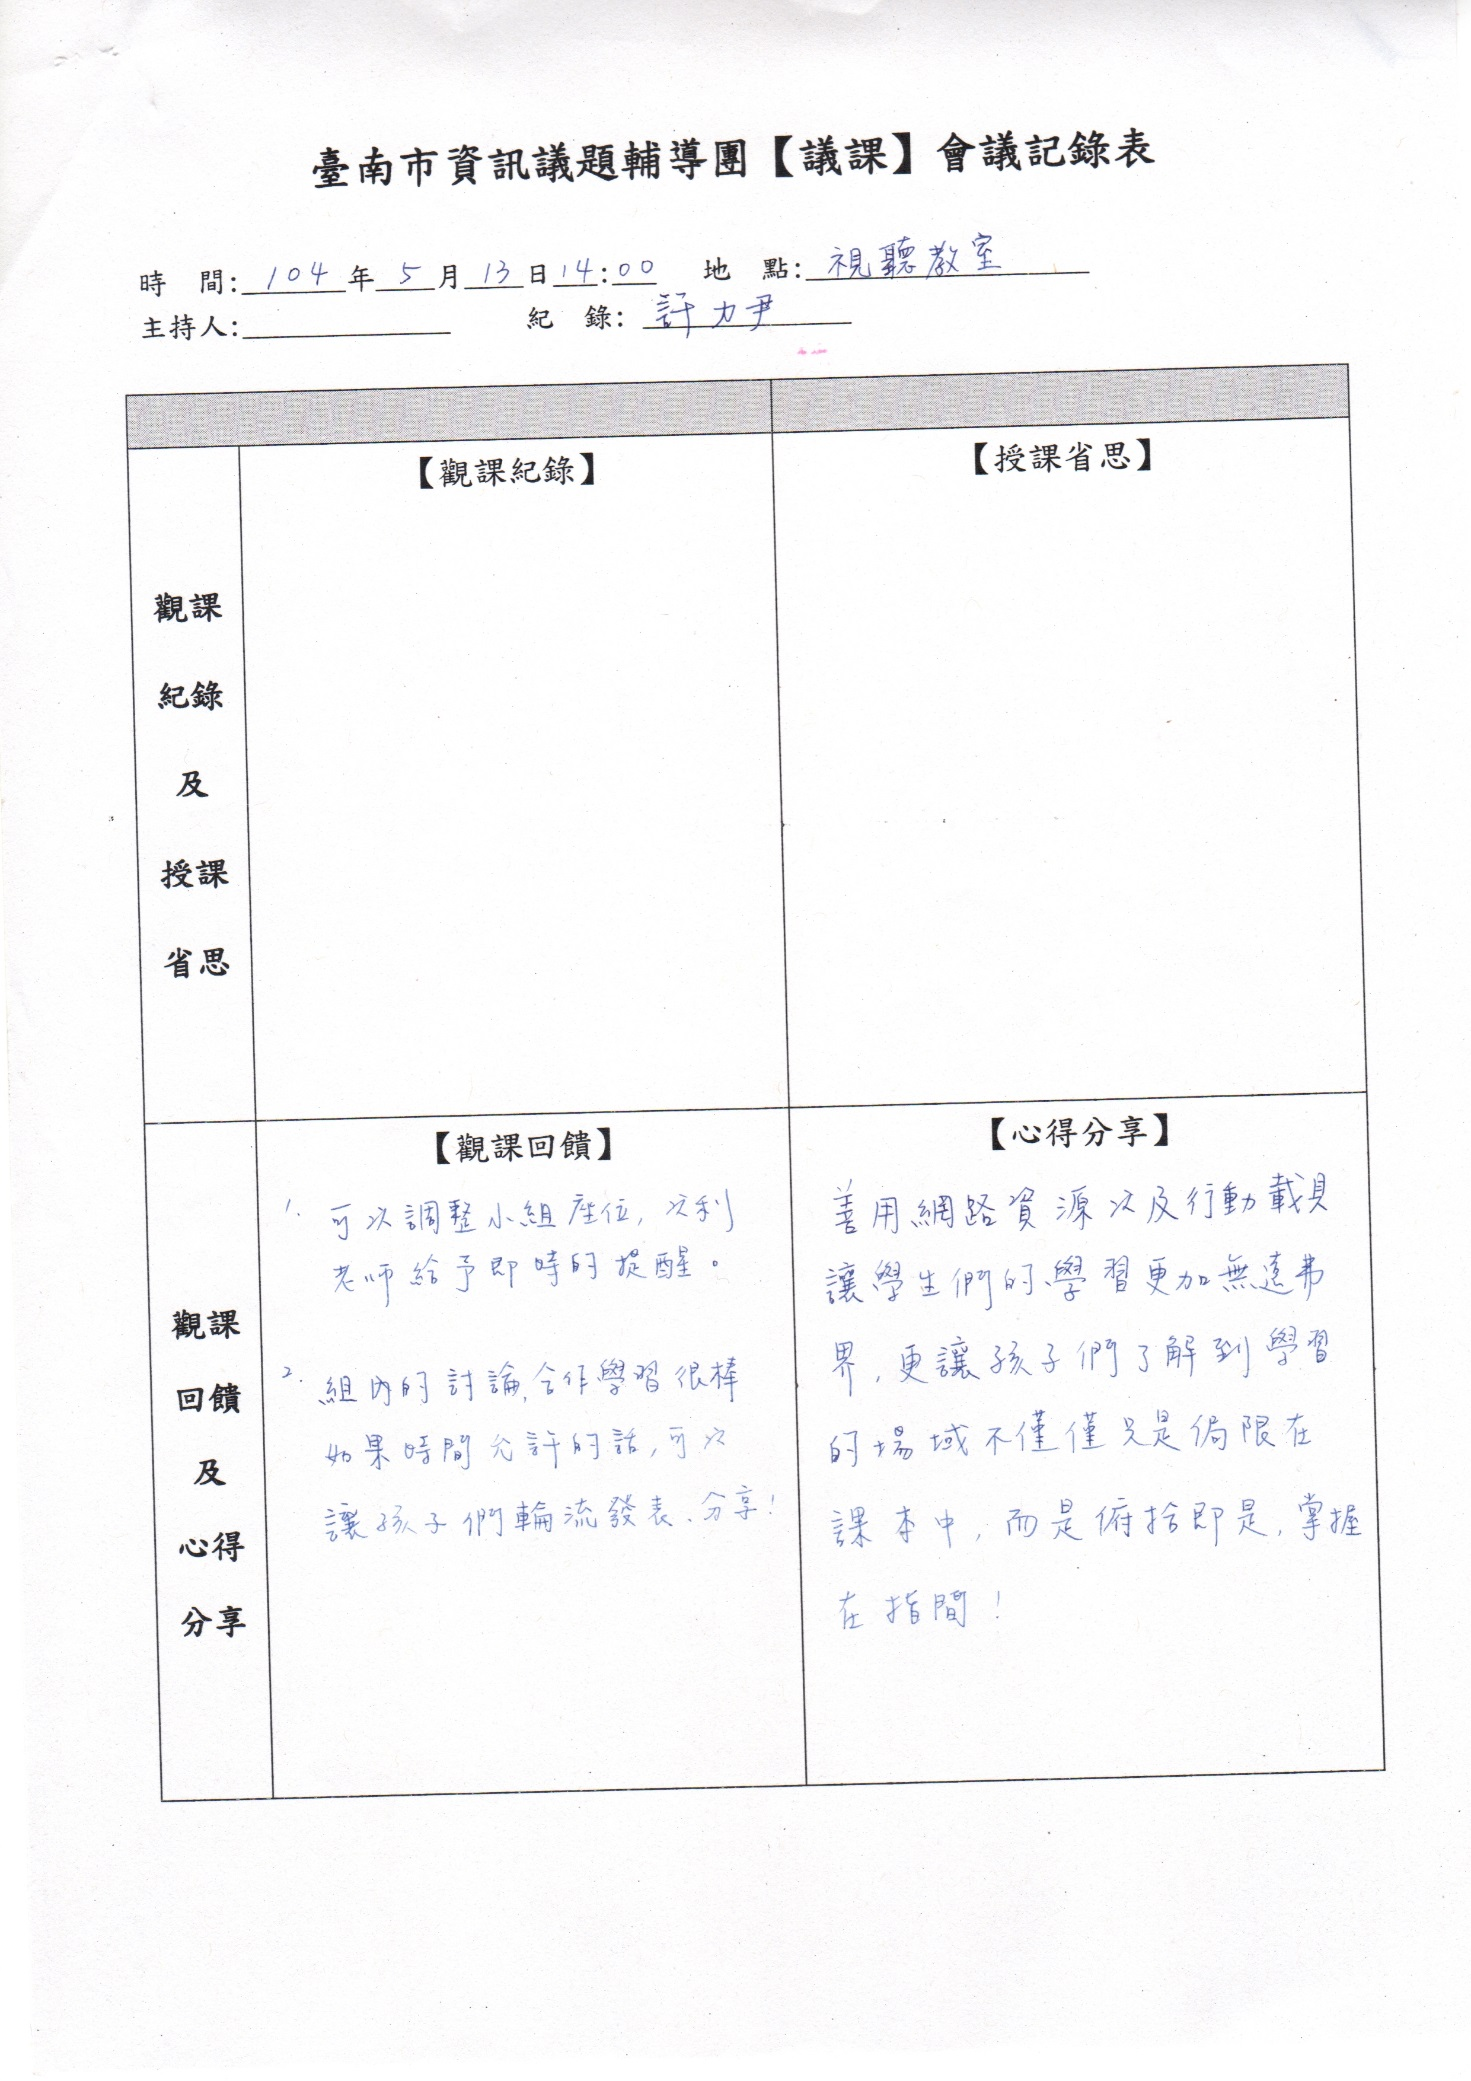 臺南市資訊議題輔導團【議課】會議記錄表
時 間:104年5月13日14:00 地 點:視聽教室
主持人: 紀 錄:許力尹
【觀課紀錄】
【授課省思】
觀課
紀錄
及
授課
省思
【觀課回饋】
1. 可以調整小組座位,以利
老師給予即時的提醒。
2. 組內的討論、合作學習很棒
如果時間允許的話,可以
讓孩子們輪流發表、分享!
【心得分享】
善用網路資源以及行動載具
讓學生們的學習更加無遠弗
界,更讓孩子們了解到學習
的場域不僅僅只是侷限在
課本中,而是俯拾即是,掌握
在指間!
觀課
回饋
及
心得
分享